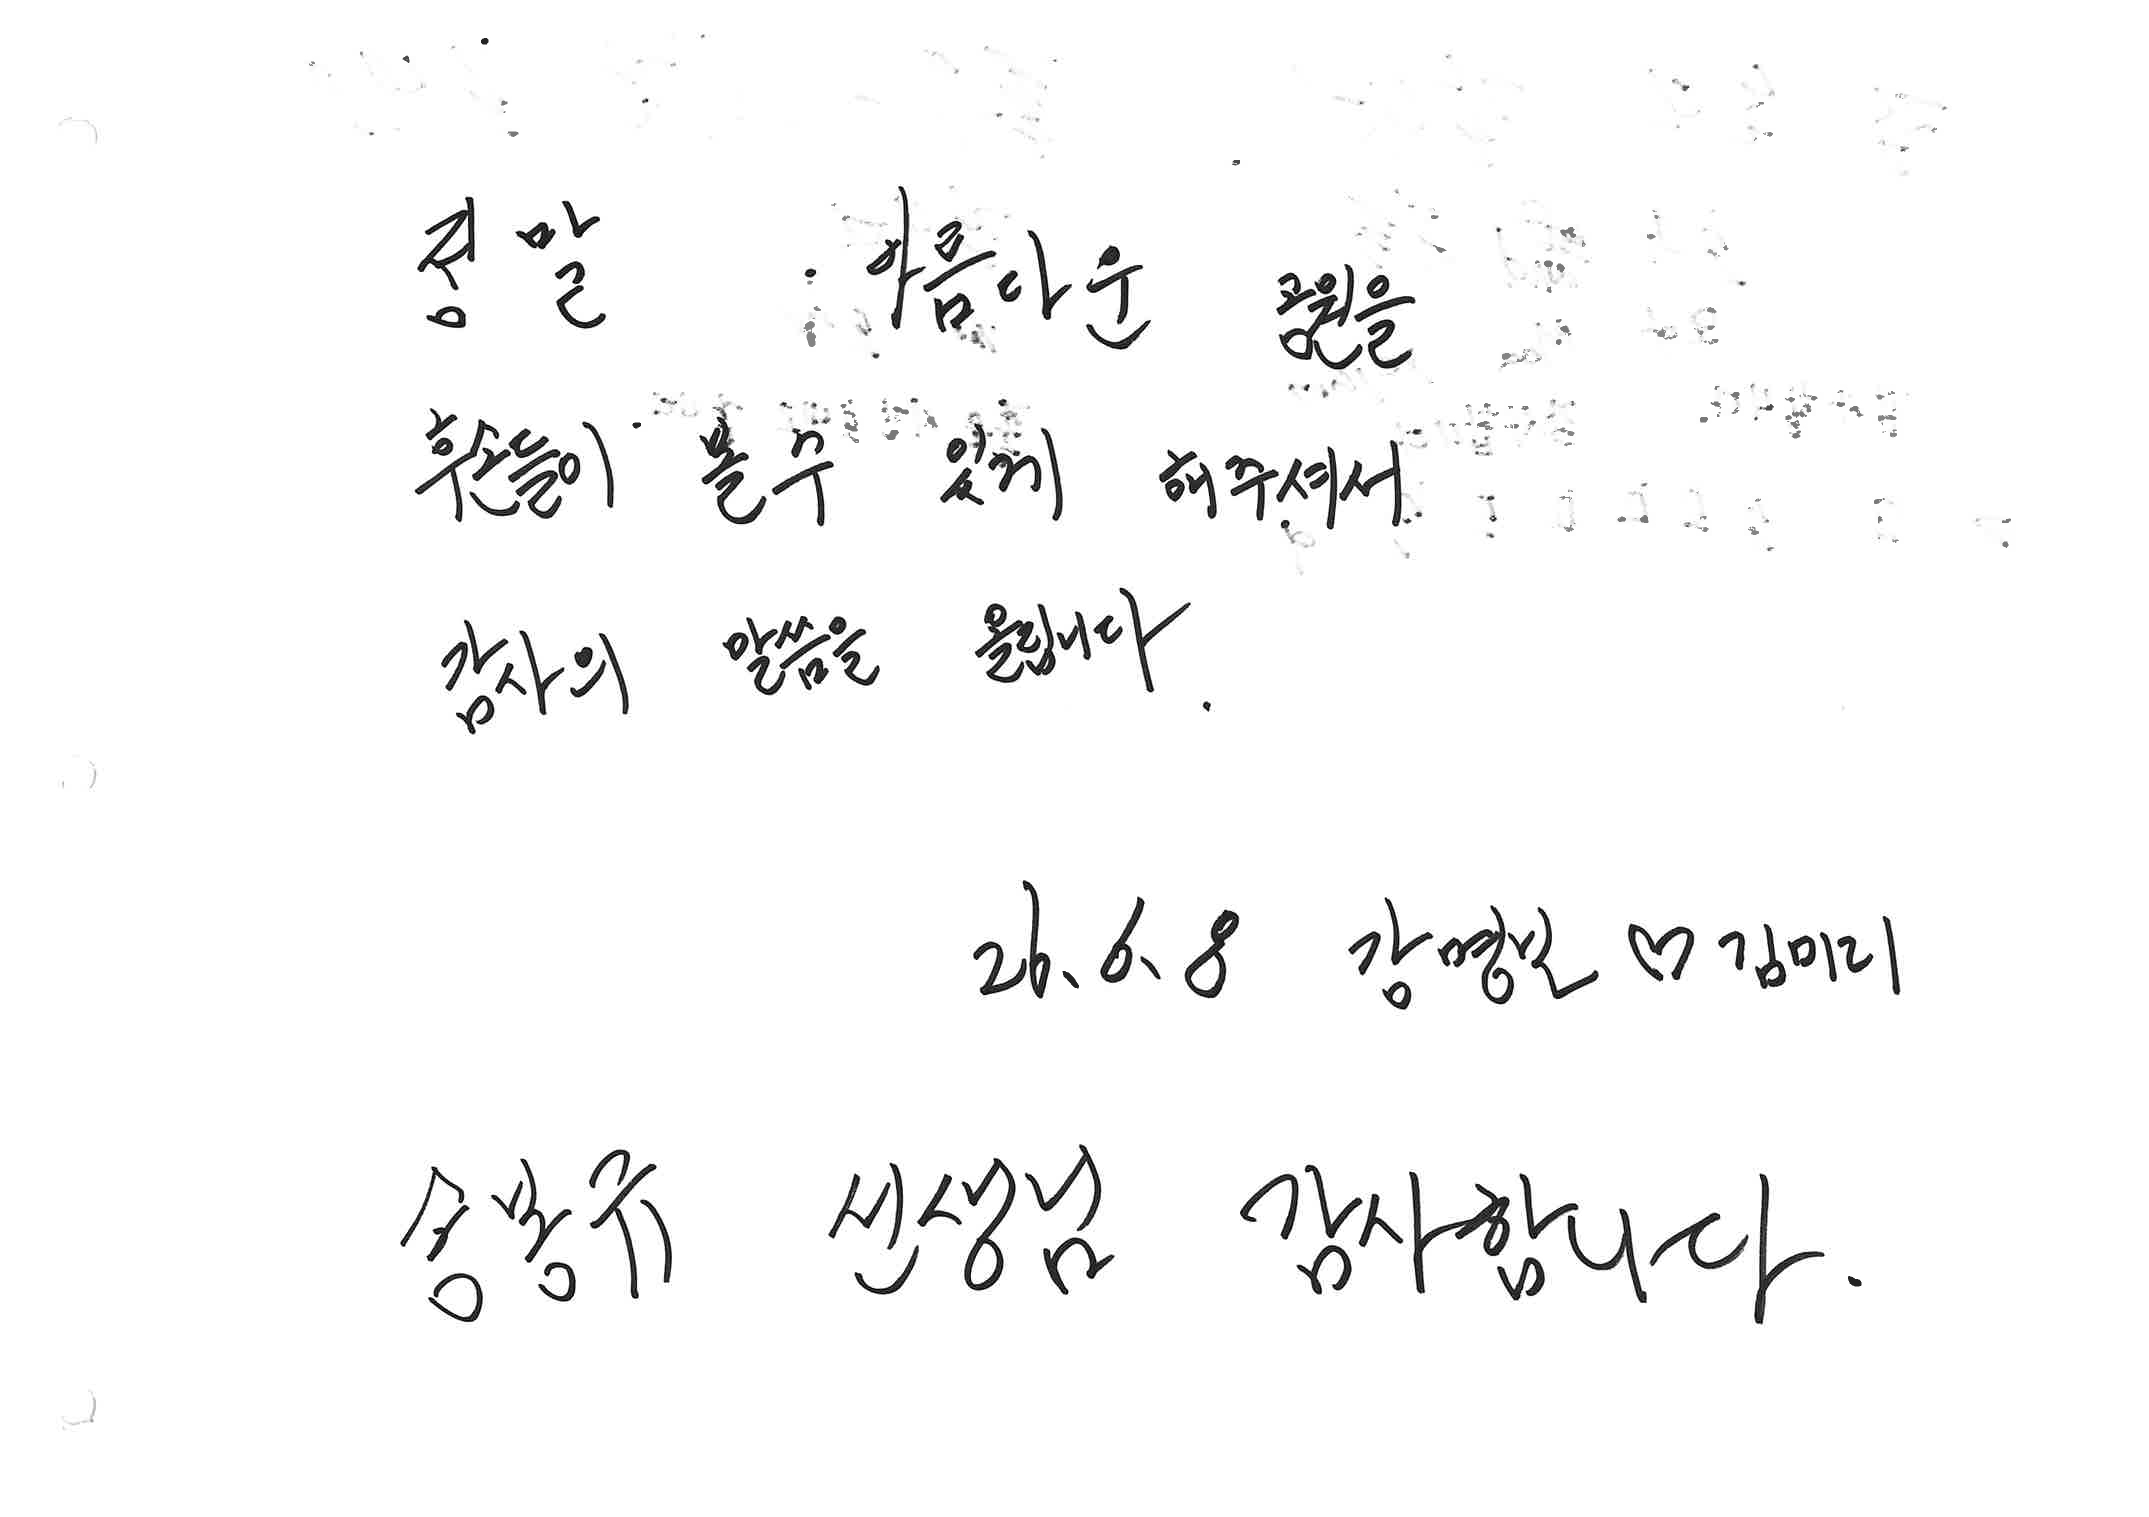 정말 아름다운 공원을
후손들이 볼 수 있게 해주셔서
감사의 말씀을 올립니다.
26. 6. 8 강명신 ♡ 김미리
송봉규 선생님 감사합니다.